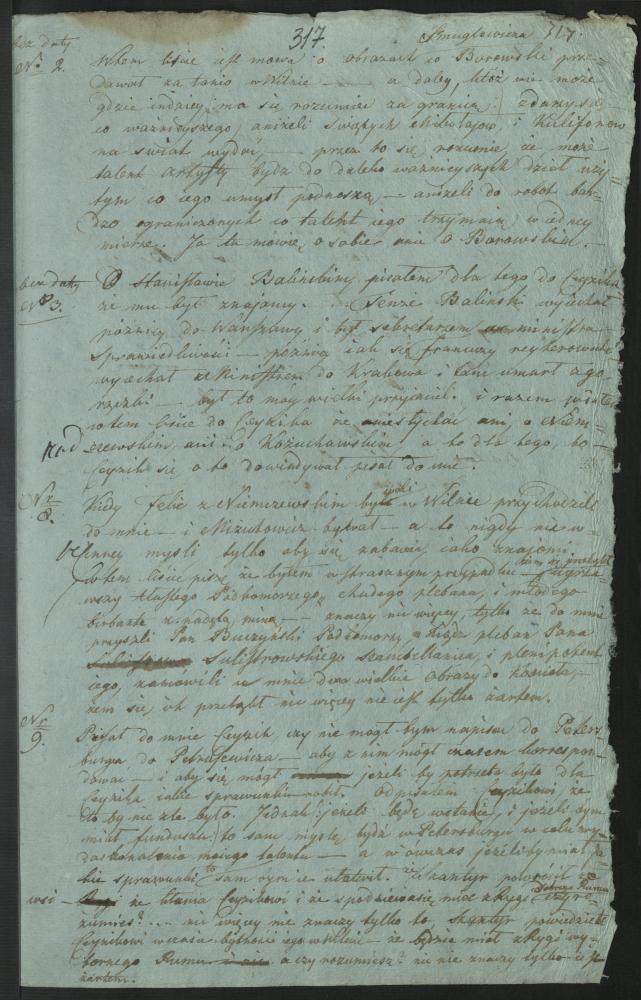 317. Smuglewicza 317.
bez daty
N° 2. W tem liście jest mowa o obrazach co Borowski prze=
dawał za tanio w Wilnie — a dalej, któż wie może
gdzie indziej ma się rozumieć za granicą: zdamy się
co ważniejszego, aniżeli świętych i Kalifonow
na świat wydać — przez to się rozumie, że może
talent Artysty bydź do daleko ważniejszych dzieł uży=
tym co jego umysł podnoszą — aniżeli do robot bar=
dzo ograniczonych co talent jego trzymaią w jedney
mierze. Ja tu mówię o sobie ani o Borowskim. —
bez daty
N° 3. O Stanisławie Balińskim pisałem dla tego do Ceyzika
że mu był znajomy. Tenże Baliński wyjechał
pozniey do Warszawy i był sekretarzem ministra
Sprawiedliwości — pozniey jak się francuzy
wyjechał z Ministrem do Krakowa i tam umarł
był to moy wielki przyjaciel. i razem pisałem
w tem liście do Ceyzika że nie słychać ani o Niem=
czewskim ani o Kożuchowskim a to dla tego, bo
Ceyzik się o to dowiadywał pisał do mnie.
Nr 8. Kiedy Felix z Niemczewskim byli w Wilnie przychodzili
do mnie — i Mizuchowicz bywał — a to nigdy nie w
inney myśli tylko aby się zabawić jako znajomi.
W tem liście piszę że byłem w strasznym przypadku
wszy tłustego Podkomorzego, chudego plebana, i młodego
birbanta z nadętą miną — znaczy nic więcey, tylko że do mnie
przyszli Pan Buczyński Podkomorzy, a Xiądz pleban Pana
Sulistrowskiego Szambellanica, i plenipotent
jego, zamowili u mnie dwa wielkie obrazy do Kościoła,
żem się ich przeląkł nic więcey nie jest tylko żartem.
Nr 9. Pisał do mnie Ceyzik czy nie mógł bym napisać do Peters=
burga do Petraszewicza — aby z nim mógł czasem korrespon=
dować — i aby się mógł jeżeli by potrzeba było dla
Ceyzika jakie sprawunki robić. Odpisałem Ceyzikowi że
to by nie źle było. Jednak jeżeli będę w stanie, i jeżeli bym
miał fundusze to sam myślę bydź w Petersburgu w celu wy=
doskonalenia mojego talentu — a w owczas jeżeli by miał ja=
kie sprawunki to sam bym ie ułatwił. Szantyr powrocił ze
wsi — że kłania Ceyzikowi i że spodziewa się mieć z Rygi Dobrego Rumu
rozumiesz?... — nic więcey nie znaczy tylko to Szantyr powiedział
Ceyzikowi w czasie bytności jego w Wilnie — że będzie miał z Rygi wy=
bornego Rumu a czy rozumiesz? nic nie znaczy tylko
żartem.